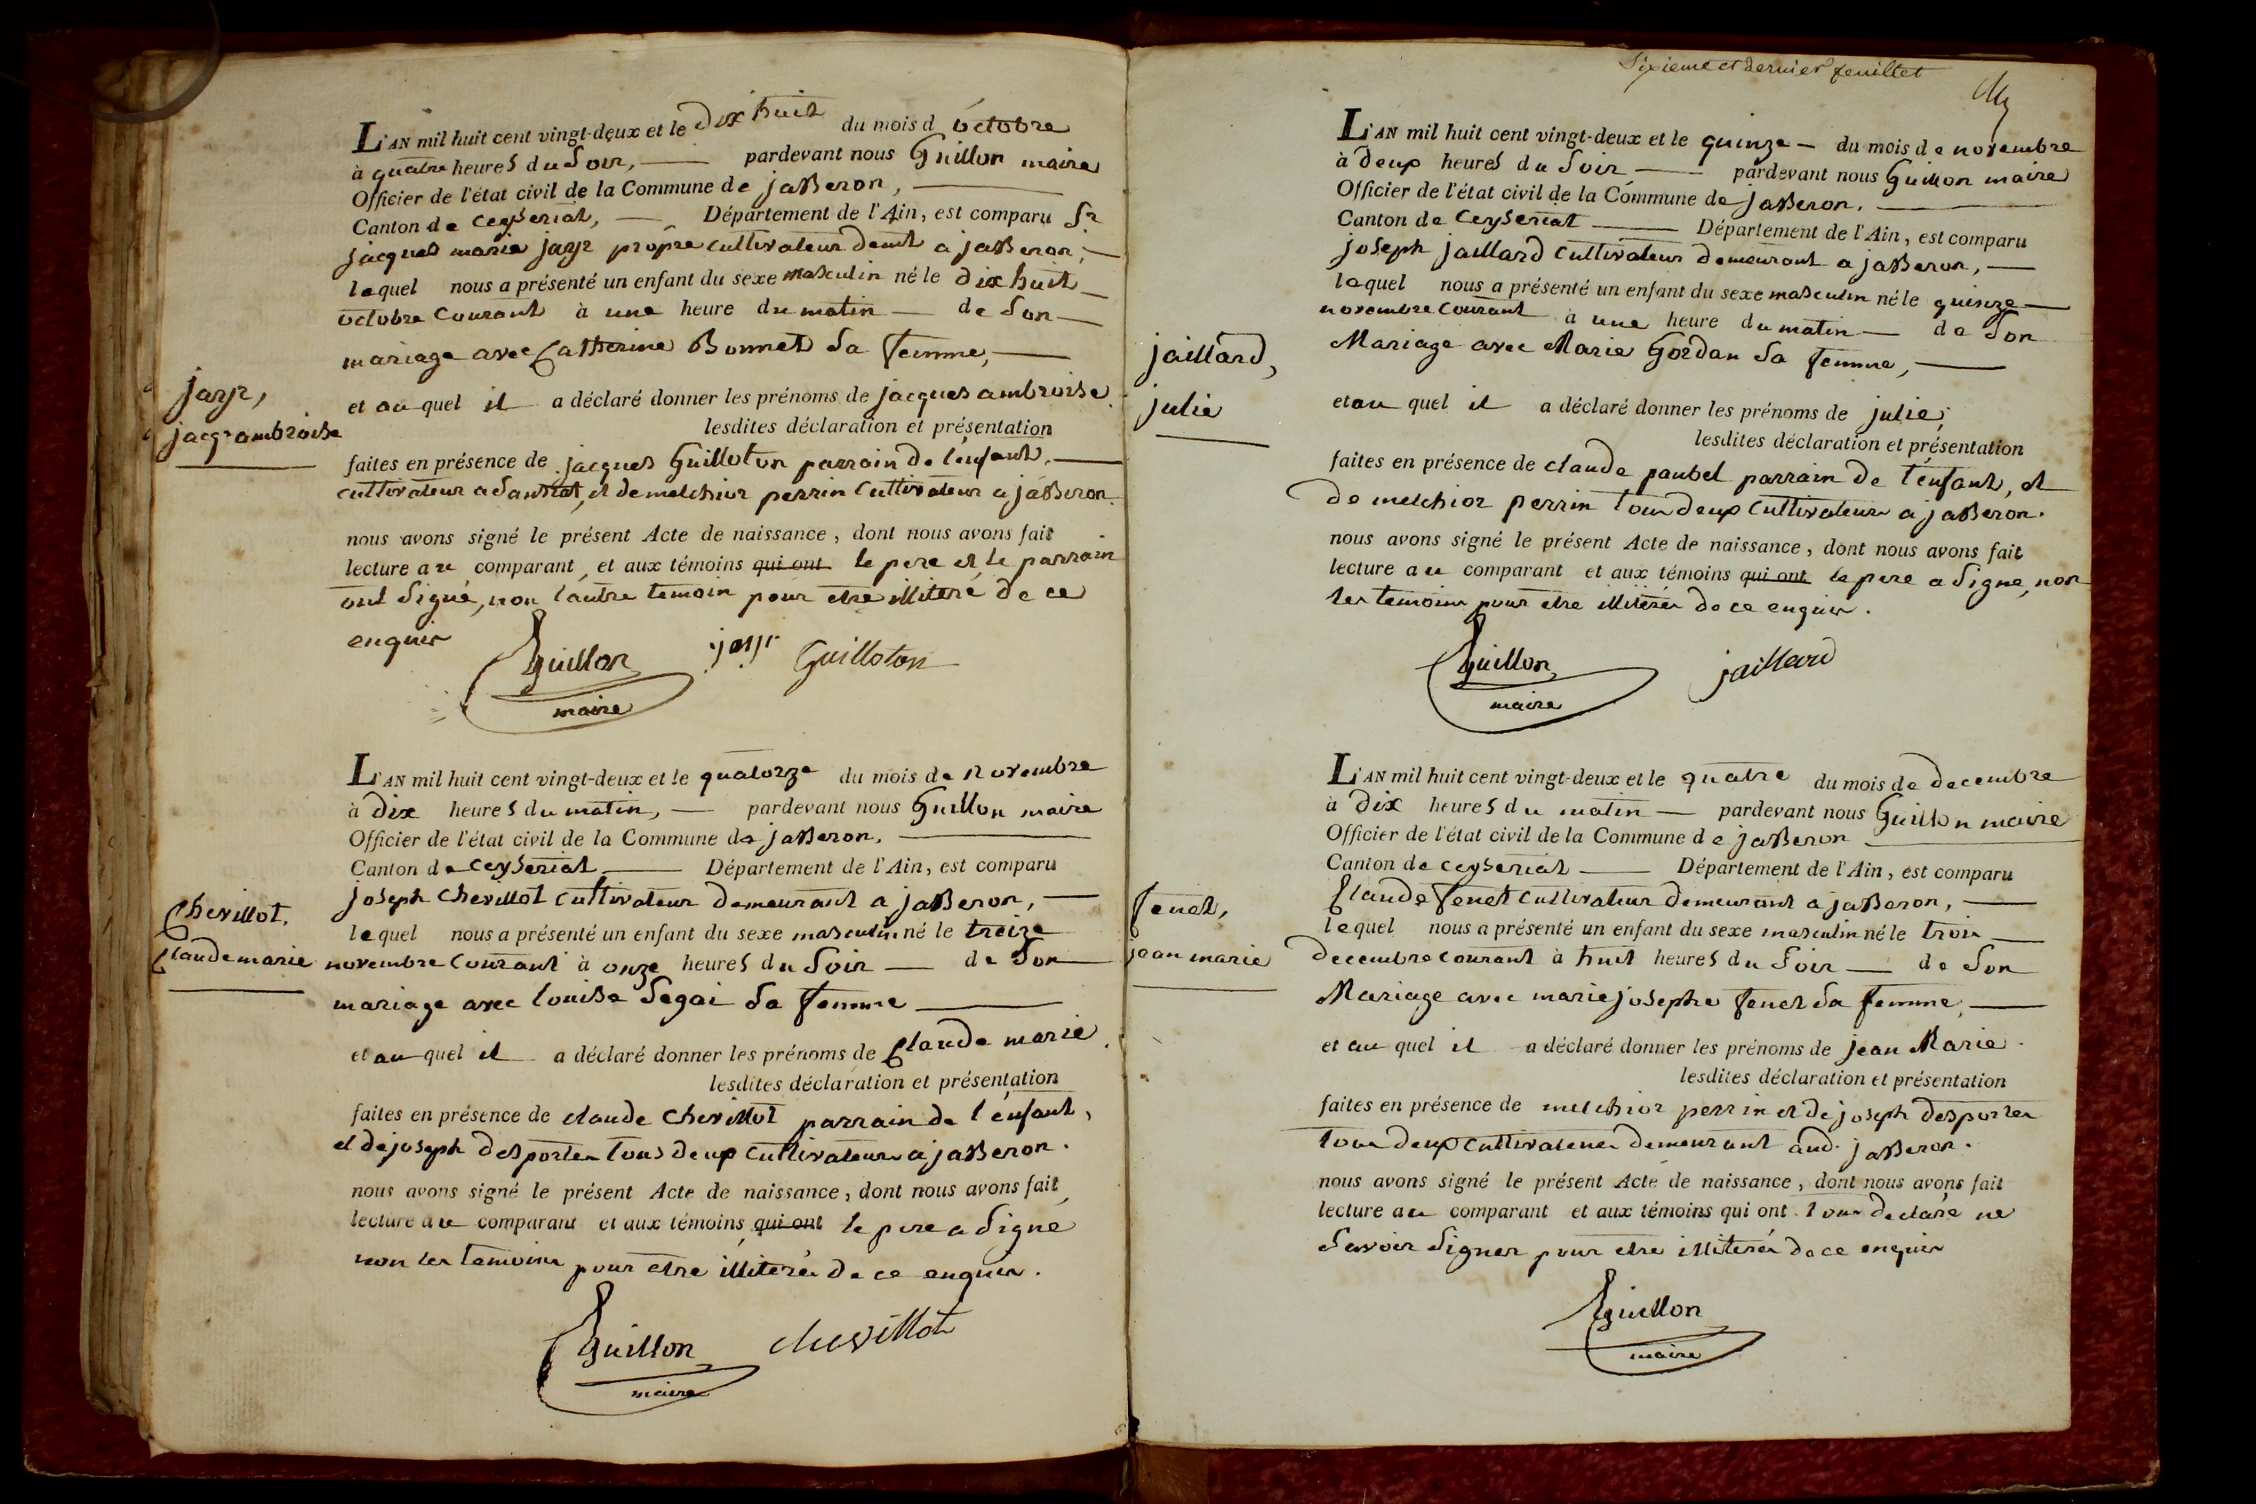 L'AN mil huit cent vingt-deux et le dix huit du mois d octobre
à quatre heures du Soir, pardevant nous Guillon maire
Officier de l'état civil de la Commune de jasseron,
Canton de ceyseriat, Département de l'Ain, est comparu Sr
jacques marie jayr propre cultivateur demt a jasseron,
lequel nous a présenté un enfant du sexe masculin né le dix huit
octobre Courant à une heure du matin de Son
mariage avec Catherine Bonnet Sa femme,
jayr,
et au quel il a déclaré donner les prénoms de jacques ambroise
jacqr ambroise
lesdites déclaration et présentation
faites en présence de jacques Guilloton parrain de l'enfant,
cultivateur a Sanciat, et de melchior perrin Cultivateur a jasseron.
nous avons signé le présent Acte de naissance, dont nous avons fait
lecture au comparant, et aux témoins qui ont le pere et le parrain
ont Signé, non l'autre temoin pour etre illiteré de ce
enquis
Guillon jayr Guilloton
maire
L'AN mil huit cent vingt-deux et le quatorze du mois de novembre
à dix heures du matin, pardevant nous Guillon maire
Officier de l'état civil de la Commune de jasseron,
Canton de Ceyseriat Département de l'Ain, est comparu
joseph Chevillot cultivateur demeurant a jasseron,
Chevillot,
lequel nous a présenté un enfant du sexe masculin né le treize
Claude marie
novembre Courant à onze heures du Soir de Son
mariage avec louise Segai Sa femme
et au quel il a déclaré donner les prénoms de Claude marie.
lesdites déclaration et présentation
faites en présence de claude Chevillot parrain de l'enfant,
et de joseph desportes tous deux cultivateurs a jasseron.
nous avons signé le présent Acte de naissance, dont nous avons fait
lecture au comparant et aux témoins, qui ont le pere a Signe
non les temoins pour etre illiterés de ce enquis.
Guillon chevillot
maire
Sixieme et dernier feuillet
L'AN mil huit cent vingt-deux et le quinze du mois de novembre
à deux heures du Soir, pardevant nous Guillon maire
Officier de l'état civil de la Commune de jasseron,
Canton de Ceyseriat Département de l'Ain, est comparu
joseph jaillard Cultivateur demeurant a jasseron,
lequel nous a présenté un enfant du sexe masculin né le quinze
novembre courant à une heure du matin de Son
jaillard,
Mariage avec Marie Gordan Sa femme,
julie
et au quel il a déclaré donner les prénoms de julie,
lesdites déclaration et présentation
faites en présence de claude paubel parrain de l'enfant, et
de melchior perrin tous deux Cultivateurs a jasseron.
nous avons signé le présent Acte de naissance, dont nous avons fait
lecture au comparant et aux témoins qui ont le pere a Signe, non
les temoins pour etre illiterés de ce enquis.
Guillon jaillard
maire
L'AN mil huit cent vingt-deux et le quatre du mois de decembre
à dix heures du matin pardevant nous Guillon maire
Officier de l'état civil de la Commune de jasseron
Canton de ceyseriat Département de l'Ain, est comparu
Claude fenet cultivateur demeurant a jasseron,
fenet,
lequel nous a présenté un enfant du sexe masculin né le trois
jean marie
decembre courant à huit heures du Soir de Son
Mariage avec marie josephe fenet Sa femme,
et au quel il a déclaré donner les prénoms de jean Marie.
lesdites déclaration et présentation
faites en présence de melchior perrin et de joseph desportes
tous deux cultivateurs demeurant aud. jasseron.
nous avons signé le présent Acte de naissance, dont nous avons fait
lecture au comparant et aux témoins qui ont tous declaré ne
Savoir Signer pour etre illiterés de ce enquis
Guillon
maire